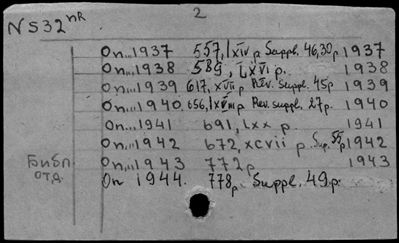 N532 nR 2
On...1937 557, lxiv p. Suppl. 46,30p 1937
On...1938 589, Lxvi p. 1938
On...1939 617, xvii p Rev. Suppl. 45p 1939
On...1940 656, p Rev. suppl. 27p. 1940
On...1941 691, lxx p 1941
On...1942 672, xcvii p Sup. 55p 1942
On...1943 772p 1943
On 1944. 778p Suppl. 49.p.
Библ.
отд.